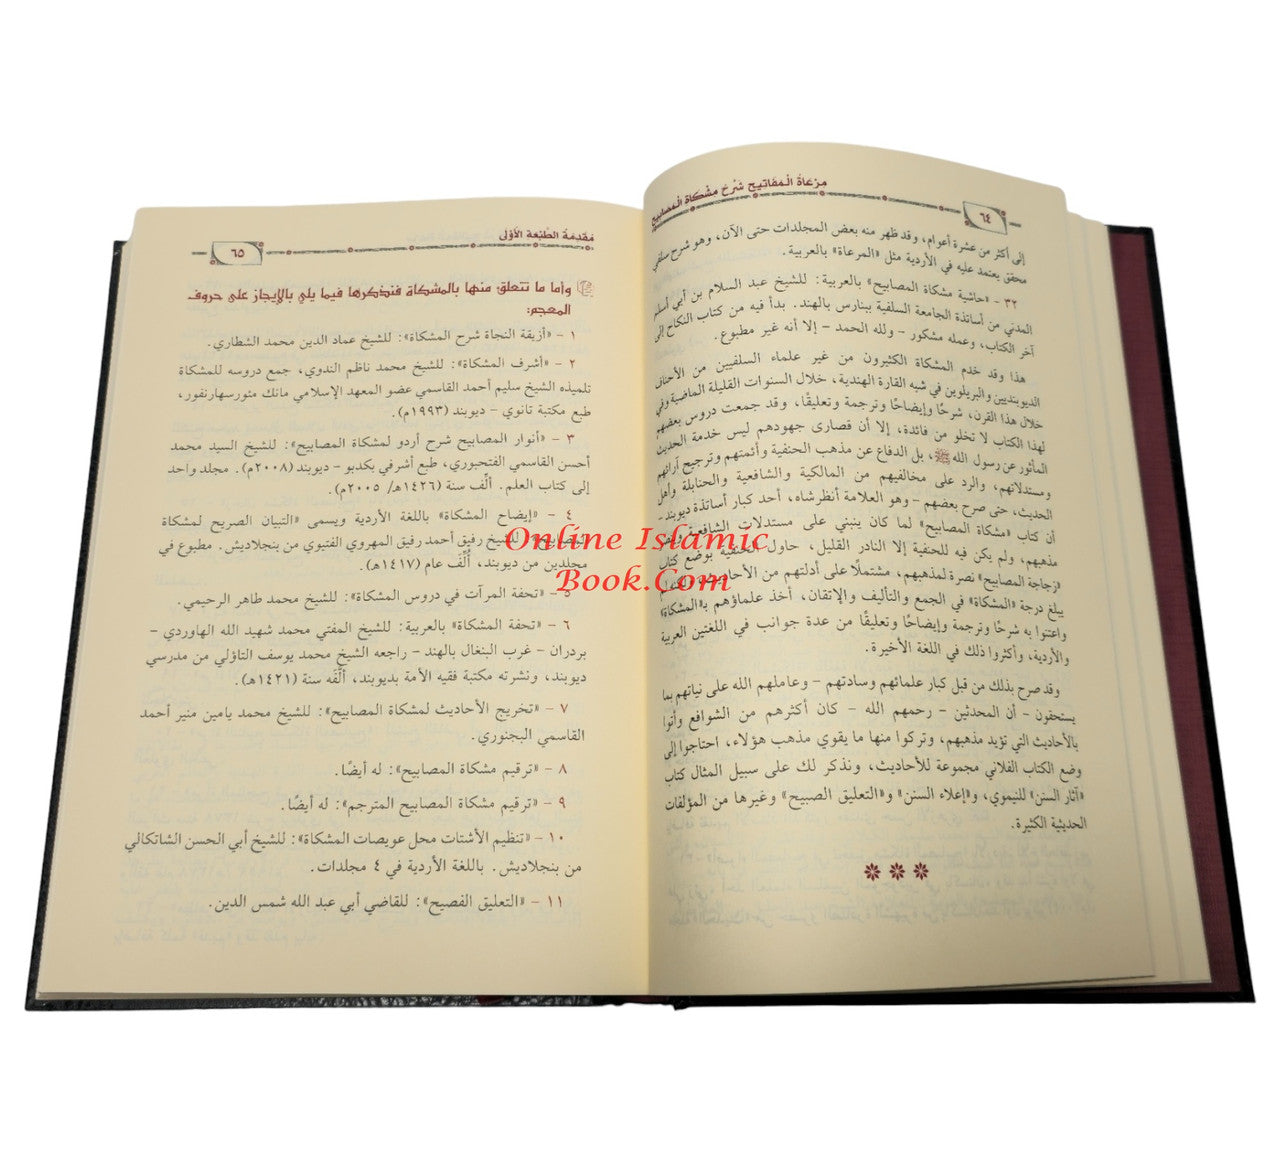 مِرْعَاةُ الْمَفَاتِيحِ شَرْحُ مِشْكَاةِ الْمَصَابِيحِ
٦٤
إلى أكثر من عشرة أعوام، وقد ظهر منه بعض المجلدات حتى الآن، وهو شرح سلفي
محقق يعتمد عليه في الأردية مثل «المرعاة» بالعربية.
٣٢ - «حاشية مشكاة المصابيح» بالعربية: للشيخ عبد السلام بن أبي أسلم
المدني من أساتذة الجامعة السلفية ببنارس بالهند. بدأ فيه من كتاب النكاح إلى
آخر الكتاب، وعمله مشكور - ولله الحمد - إلا أنه غير مطبوع.
هذا وقد خدم المشكاة الكثيرون من غير علماء السلفيين من الأحناف
الديوبنديين والبريلوين في شبه القارة الهندية، خلال السنوات القليلة الماضية وفي
خلال هذا القرن، شرحًا وإيضاحًا وترجمة وتعليقًا، وقد جمعت دروس بعضهم
لهذا الكتاب لا تخلو من فائدة، إلا أن قصارى جهودهم ليس خدمة الحديث
المأثور عن رسول الله ﷺ، بل الدفاع عن مذهب الحنفية وأئمتهم وترجيح آرائهم
ومستدلاتهم، والرد على مخالفيهم من المالكية والشافعية والحنابلة وأهل
الحديث، حتى صرح بعضهم - وهو العلامة أنظرشاه، أحد كبار أساتذة ديوبند -
أن كتاب «مشكاة المصابيح» لما كان ينبني على مستدلات الشافعية
مذهبهم، ولم يكن فيه للحنفية إلا النادر القليل، حاول الحنفية بوضع كتاب
«زجاجة المصابيح» نصرة لمذهبهم، مشتملًا على أدلتهم من
يبلغ درجة «المشكاة» في الجمع والتأليف والإتقان، أخذ علماؤهم بـ«المشكاة»
واعتنوا به شرحًا وترجمة وإيضاحًا وتعليقًا من عدة جوانب في اللغتين العربية
والأردية، وأكثروا ذلك في اللغة الأخيرة.
وقد صرح بذلك من قبل كبار علمائهم وسادتهم - وعاملهم الله على نياتهم بما
يستحقون - أن المحدثين - رحمهم الله - كان أكثرهم من الشوافع وأتوا
بالأحاديث التي تؤيد مذهبهم، وتركوا منها ما يقوي مذهب هؤلاء، احتاجوا إلى
وضع الكتاب الفلاني مجموعة للأحاديث، ونذكر لك على سبيل المثال كتاب
«آثار السنن» للنيموي، و«إعلاء السنن» و«التعليق الصبيح» وغيرها من المؤلفات
الحديثية الكثيرة.
مُقَدِّمَةُ الطَّبْعَةِ الأُوْلَى
٦٥
وأما ما تتعلق منها بالمشكاة فنذكرها فيما يلي بالإيجاز على حروف
المعجم:
١ - «أزيقة النجاة شرح المشكاة»: للشيخ عماد الدين محمد الشطاري.
٢ - «أشرف المشكاة»: للشيخ محمد ناظم الندوي، جمع دروسه للمشكاة
تلميذه الشيخ سليم أحمد القاسمي عضو المعهد الإسلامي مانك مئورسهارنفور،
طبع مكتبة تانوي - ديوبند (١٩٩٣م).
٣ - «أنوار المصابيح شرح أردو لمشكاة المصابيح»: للشيخ السيد محمد
أحسن القاسمي الفتحبوري، طبع أشرفي بكدبو - ديوبند (٢٠٠٨م). مجلد واحد
إلى كتاب العلم. ألّف سنة (١٤٢٦هـ/ ٢٠٠٥م).
٤ - «إيضاح المشكاة» باللغة الأردية ويسمى «التبيان الصريح لمشكاة
المصابيح»: للشيخ رفيق أحمد رفيق المهروي الفتيوي من بنجلاديش. مطبوع في
مجلدين من ديوبند، أُلِّفَ عام (١٤١٧هـ).
٥ - «تحفة المرآت في دروس المشكاة»: للشيخ محمد طاهر الرحيمي.
٦ - «تحفة المشكاة» بالعربية: للشيخ المفتي محمد شهيد الله الهاوردي -
بردران - غرب البنغال بالهند - راجعه الشيخ محمد يوسف التاؤلي من مدرسي
ديوبند، ونشرته مكتبة فقيه الأمة بديوبند، ألّفَه سنة (١٤٢١هـ).
٧ - «تخريج الأحاديث لمشكاة المصابيح»: للشيخ محمد يامين منير أحمد
القاسمي البجنوري.
٨ - «ترقيم مشكاة المصابيح»: له أيضًا.
٩ - «ترقيم مشكاة المصابيح المترجم»: له أيضًا.
١٠ - «تنظيم الأشتات محل عويصات المشكاة»: للشيخ أبي الحسن الشاتكالي
من بنجلاديش. باللغة الأردية في ٤ مجلدات.
١١ - «التعليق الفصيح»: للقاضي أبي عبد الله شمس الدين.
Online Islamic
Book.Com